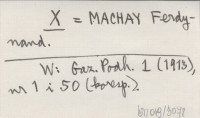 X = MACHAY Ferdy-
nand.
W: Gaz. Podh. 1 (1913),
nr 1 i 50 (koresp.).